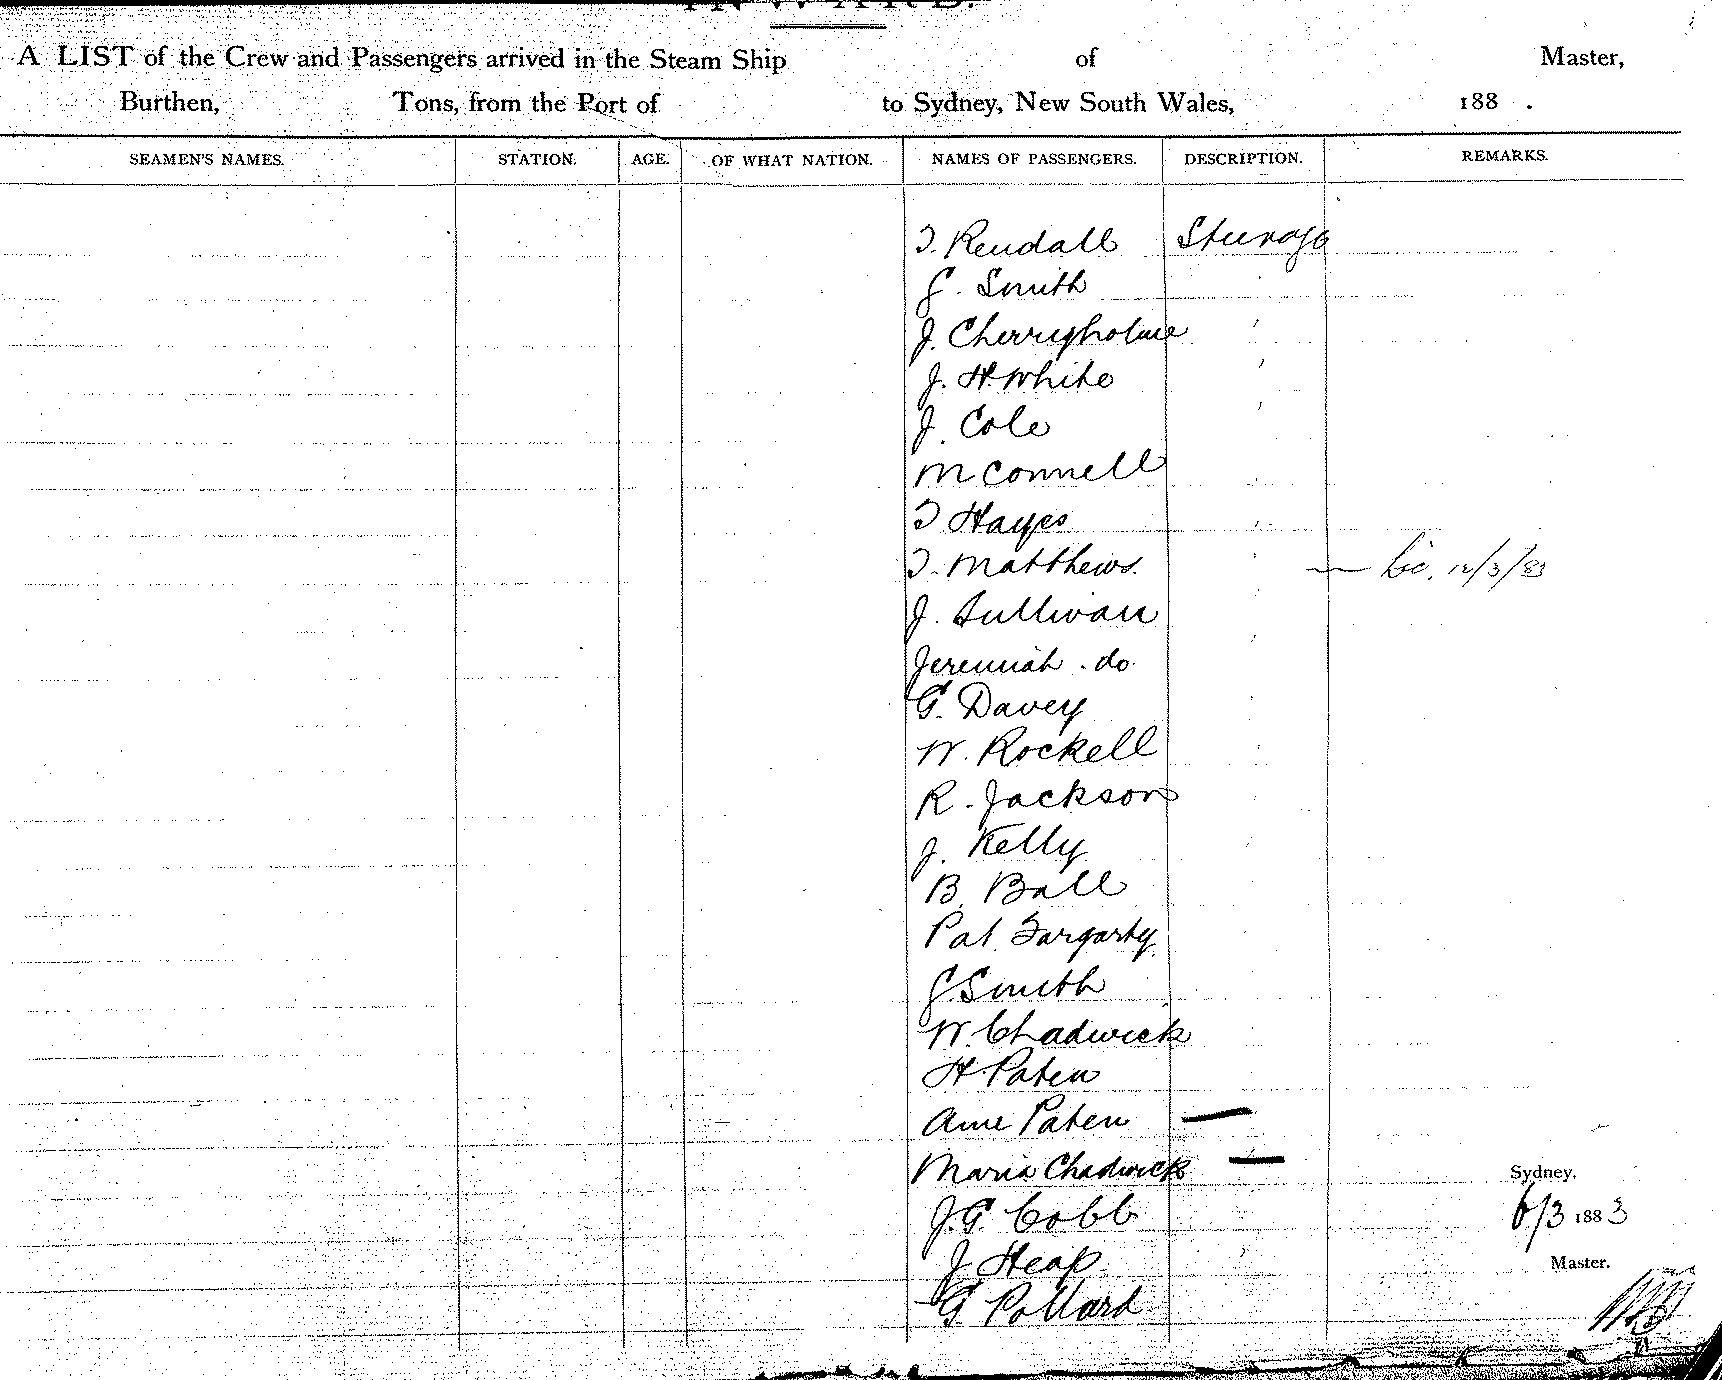 INWARD.
A LIST of the Crew and Passengers arrived in the Steam Ship of Master,
Burthen, Tons, from the Port of to Sydney, New South Wales, 188 .
SEAMEN'S NAMES. STATION. AGE. OF WHAT NATION. NAMES OF PASSENGERS. DESCRIPTION. REMARKS.
T. Rendall Steerage
G. Smith
J. Cherryholme
J. H. White
J. Cole
M Connell
T Hayes
T. Matthews. 12/3/83
J. Sullivan
Jeremiah . do.
G. Davey
W. Rockell
R. Jackson
J. Kelly
B. Ball
Pat Fargarty
G Smith
W. Chadwick
H. Paten
Ame Paten —
Maria Chadwick —
Sydney.
J.G. Cobb 6/3 1883
J Heap
Master.
G Pollard